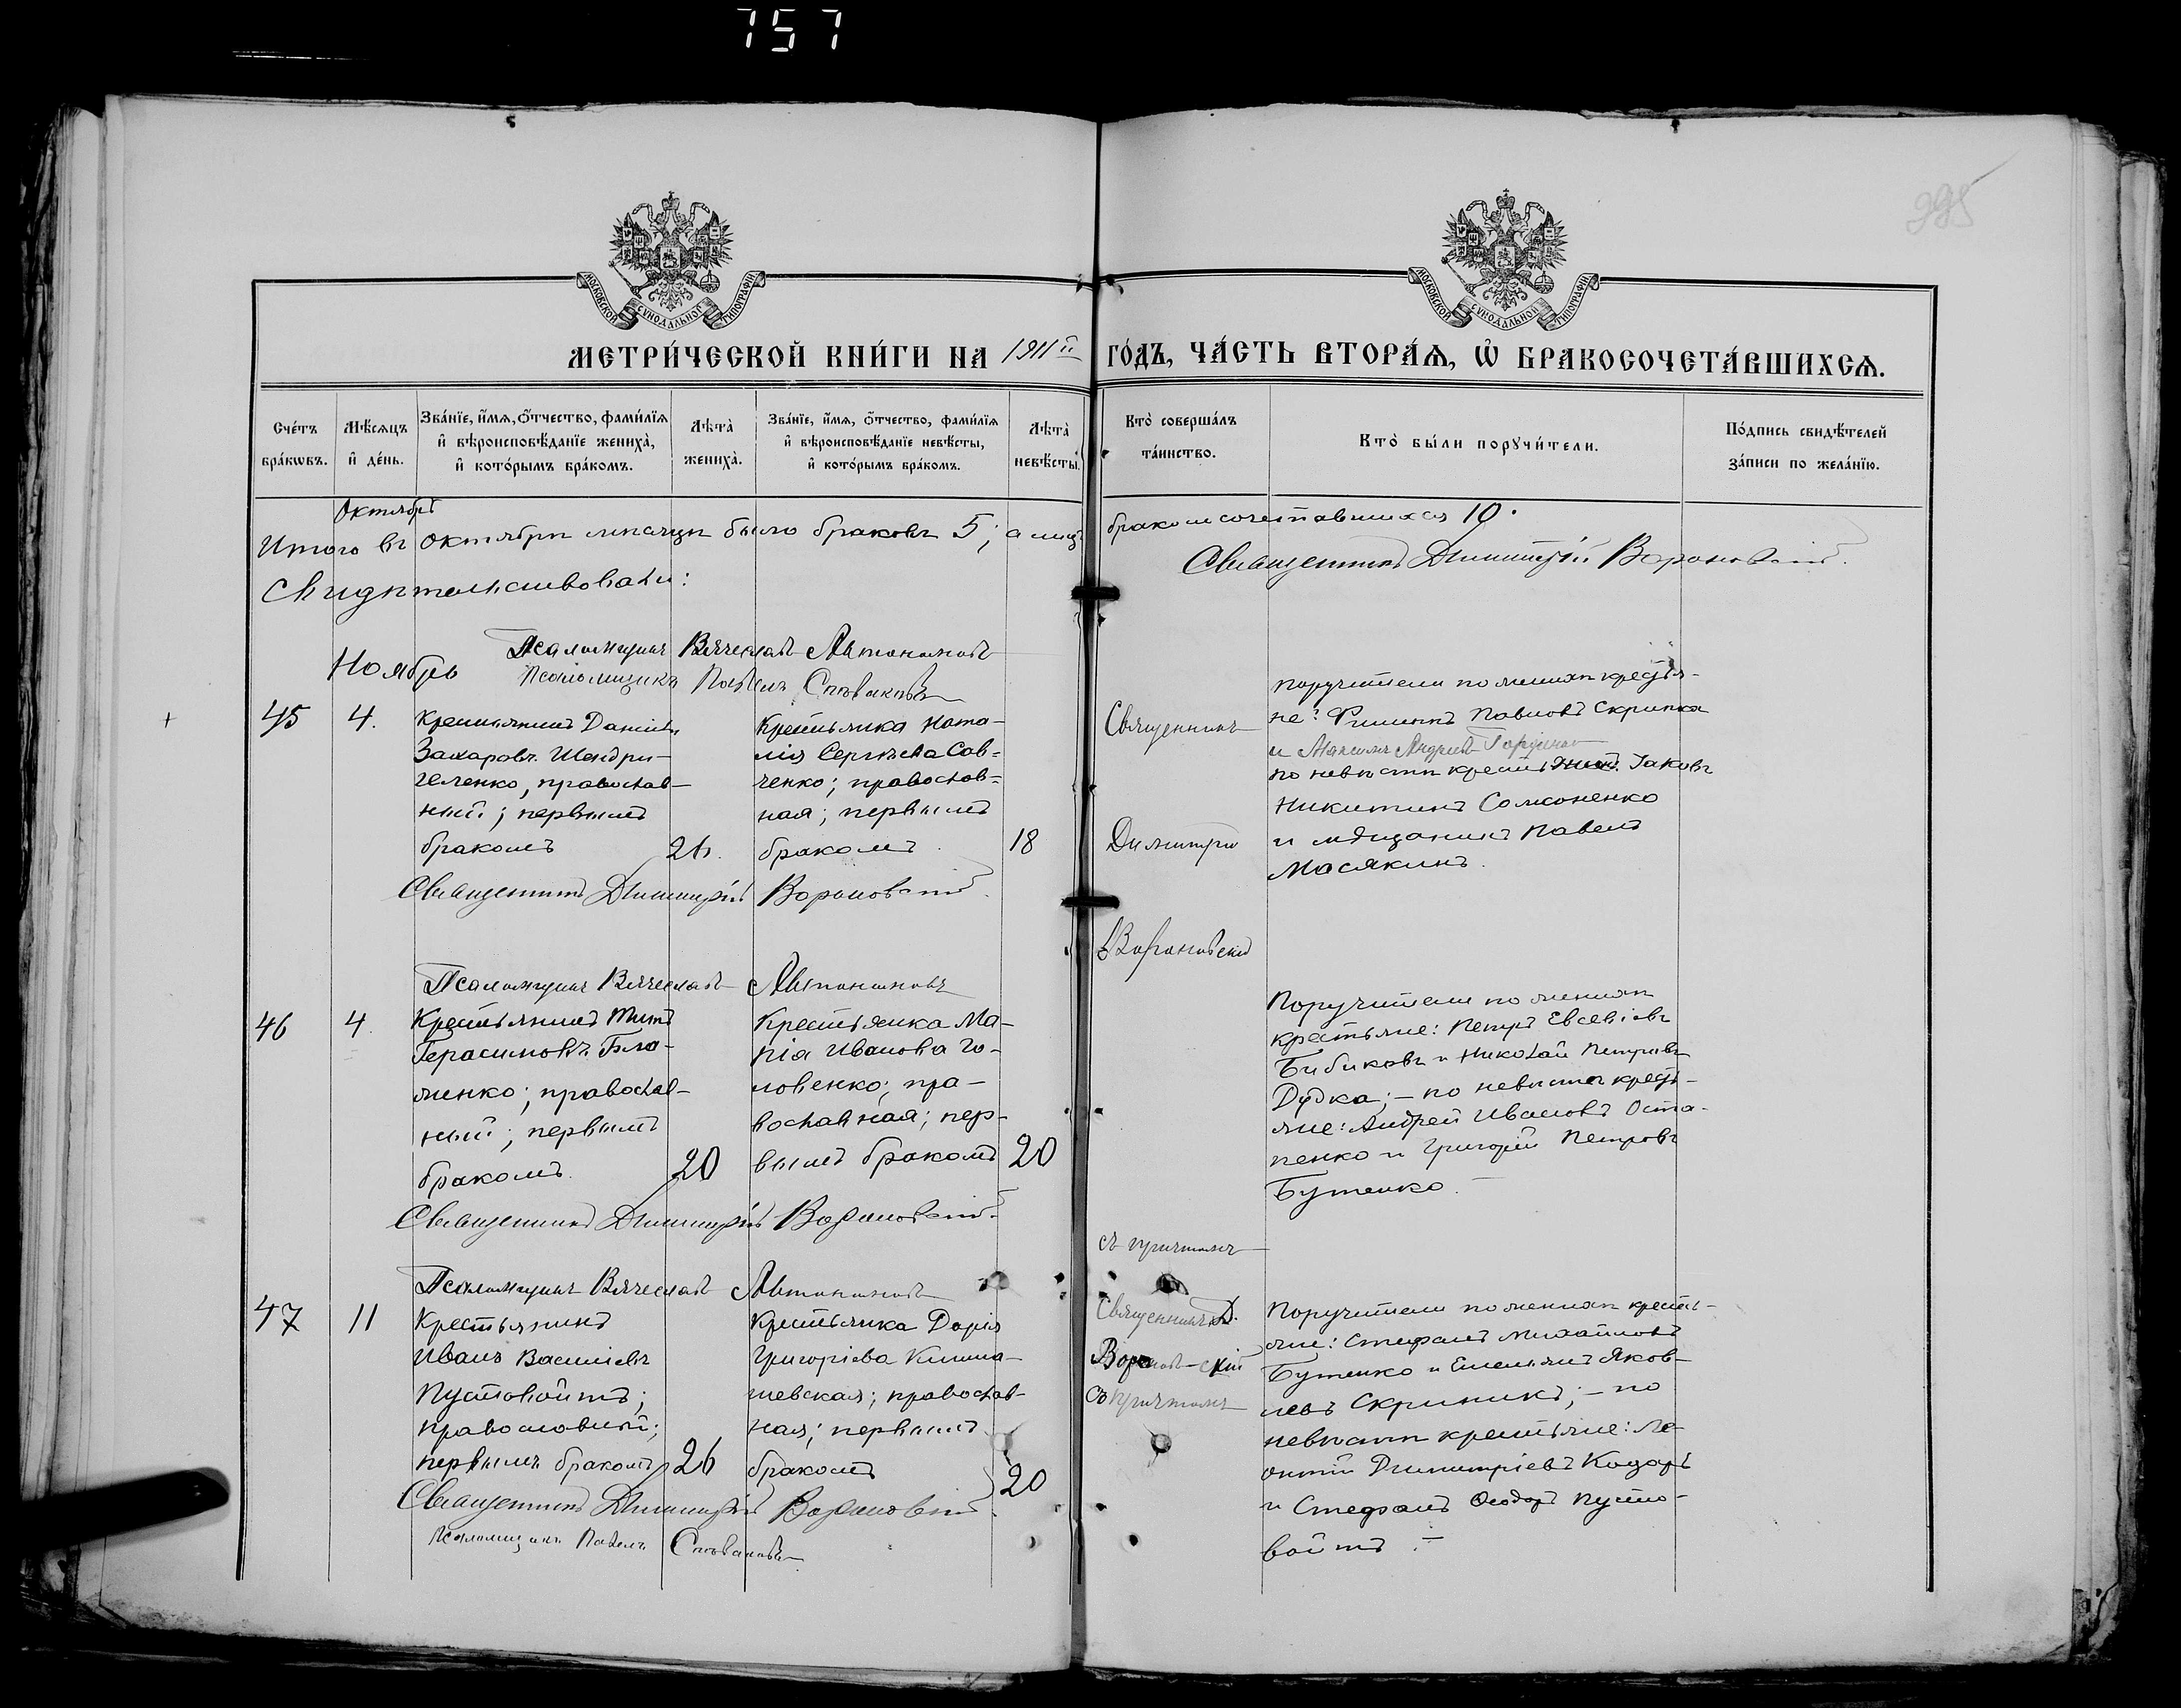 757
995
МОСКОВСКОЙ СѴНОДАЛЬНОЙ ТИПОГРАФІИ
МОСКОВСКОЙ СѴНОДАЛЬНОЙ ТИПОГРАФІИ
МЕТРИ́ЧЕСКОЙ КНИ́ГИ НА 1911й ГО́ДЪ, ЧА́СТЬ ВТОРА́Ѧ, Ѡ҆ БРАКОСОЧЕТА́ВШИХСѦ.
Сче́тъ бра́кѡвъ.
Мѣ́сяцъ и҆ де́нь.
Зва́нїе, и҆́мя, ѻ҆́тчество, фами́лїя и҆ вѣроисповѣ́данїе жениха̀, и҆ кото́рымъ бра́комъ.
Лѣта̀ жениха̀.
Зва́нїе, и҆́мя, ѻ҆́тчество, фами́лїя и҆ вѣроисповѣ́данїе невѣ́сты, и҆ кото́рымъ бра́комъ.
Лѣта̀ невѣ́сты.
Кто̀ соверша́лъ та́инство.
Кто̀ бы́ли порꙋчи́тели.
По́дпись свидѣ́телей за́писи по жела́нїю.
Октябрь
Итого въ Октябрѣ мѣсяцѣ было браковъ 5; а лицъ бракомсочетавшихся 10.
Священникъ Димитрій Вороновскій.
Свидѣтельствовали:
Псаломщикъ Вячеславъ Автономовъ
Ноябрь
Псаломщикъ Павелъ Спѣваковъ
45
4.
Крестьянинъ Даніилъ
Захаровъ Шендри-
ченко, православ-
ный; первымъ
бракомъ
26.
Крестьянка Ната-
лія Сергѣева Сав-
ченко; православ-
ная; первымъ
бракомъ.
18
Священникъ
Димитрій
Вороновскій
Поручители по женихѣ крестья-
не: Филиппъ Павловъ Скрипка
и Максимъ Андреевъ
по невѣстѣ крестьян. Іаковъ
Никитинъ
и мѣщанинъ Павелъ
Масякинъ.
Священникъ Димитрій Вороновскій.
Псаломщикъ Вячеславъ Автономовъ
46
4.
Крестьянинъ Титъ
Герасимовъ
ненко; православ-
ный; первымъ
бракомъ.
20
Крестьянка Ма-
рія Иванова Го-
ловенко; пра-
вославная; пер-
вымъ бракомъ
20
Поручители по женихѣ
крестьяне: Петръ Евсевіевъ
Бибиковъ и Николай Петровъ
Дудка; - по невѣстѣ кресть-
яне: Андрей Ивановъ Оста-
пенко и Григорій Петровъ
Бутенко.
Священникъ Димитрій Вороновскій.
съ причтомъ
Псаломщикъ Вячеславъ Автономовъ
47
11
Крестьянинъ
Иванъ Васильевъ
Пустовойтъ;
православный;
первымъ бракомъ
26
Крестьянка Дарія
Григоріева Клима-
шевская; православ-
ная; первымъ
бракомъ
20
Священникъ Д.
Воронов-скій
съ причтомъ
Поручители по женихѣ кресть-
яне: Стефанъ Михайловъ
Бутенко и Емельянъ Яков-
левъ Скрипникъ; - по
невѣстѣ крестьяне: Ле-
онтій Димитріевъ Козарь
и Стефанъ Ѳеодор. Пусто-
войтъ.
Священникъ Димитрій Вороновскій.
Псаломщикъ Павелъ Спѣваковъ